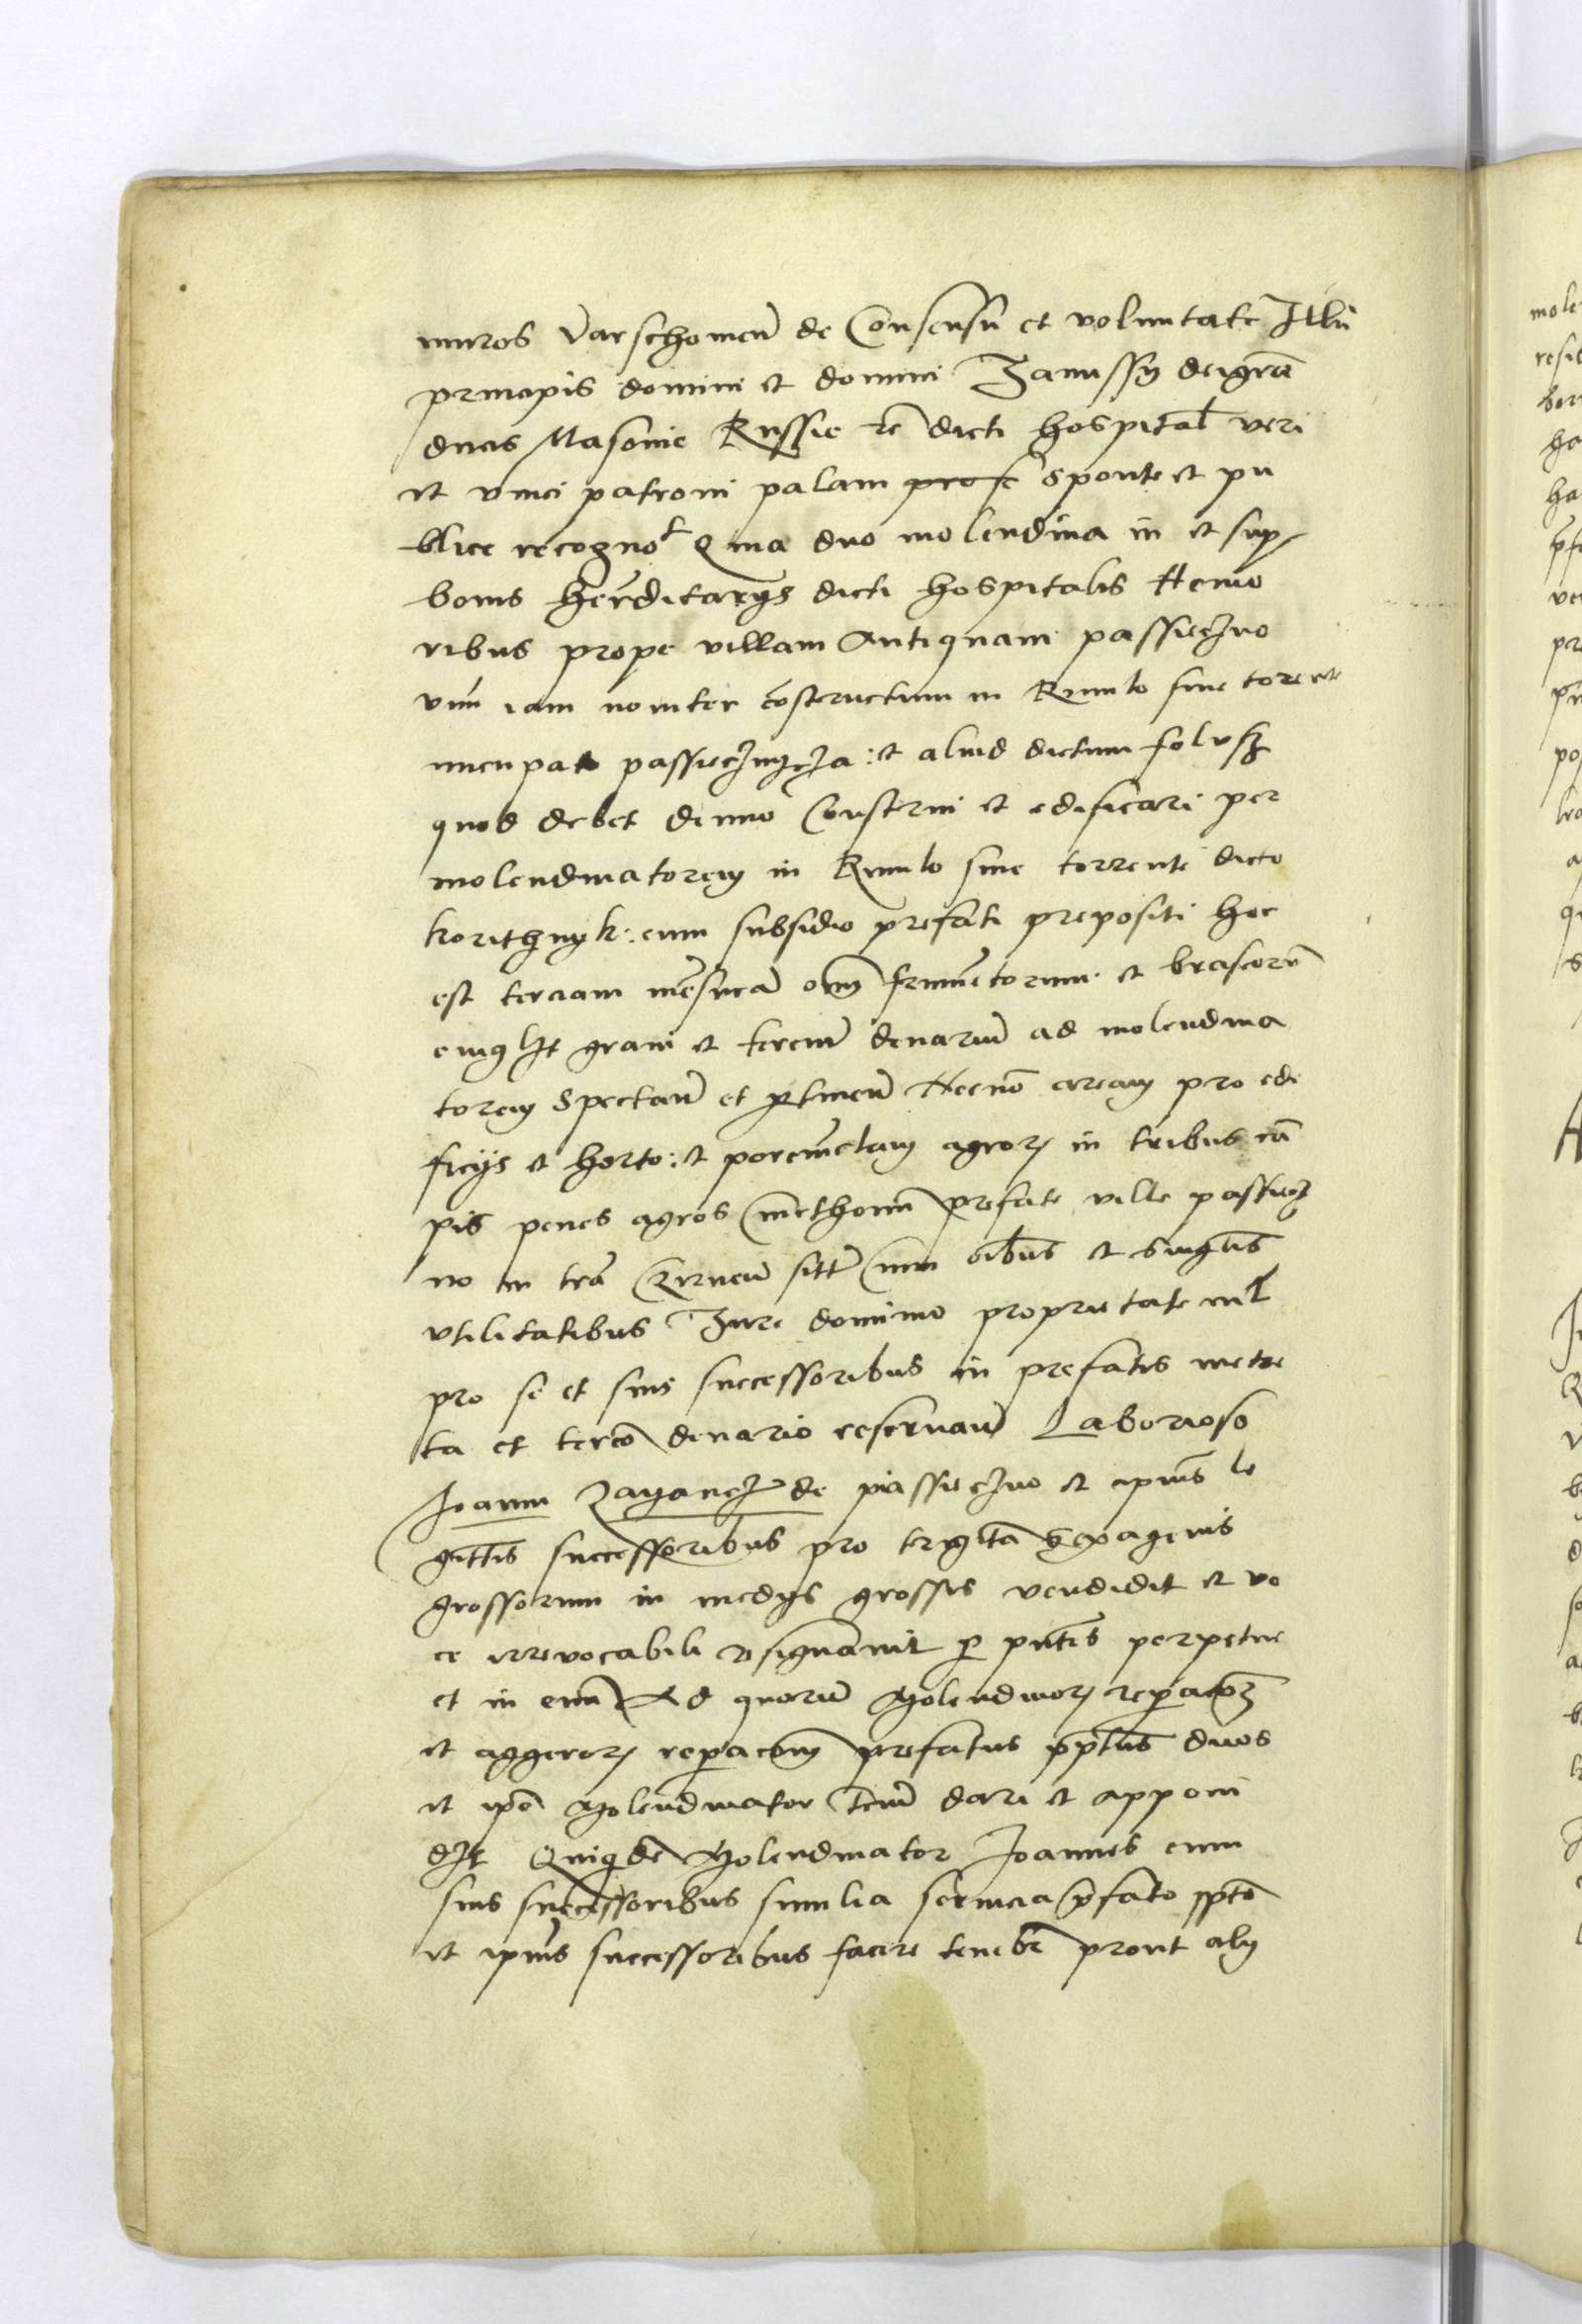 muros varschouien̄ de Consensu et voluntate Illū
principis domini et domini Janussy dei gr̄a
ducis Masouie Russie rc̄ dicti hospital̄ veri
et vnici patroni palam profe sponte et pu
blice recognot Quia duo molendina in et sup
bonis hered̄itarys dicti hospitalis Nemo
ribus prope villam Antiquam passieczno
vnū iam nouiter c̄ostructum in Riuulo siue torente
nūcupato passiecznicza : et aliud dictum folusz
quod debet denuo Construi et edificari per
molendinatorem in Riuulo siue torrente dicto
korithnyk : cum subsidio prefati prepositi hoc
est terciam mēsurā om̄ frumētorum et braseorū
cuiuslit grani et terciū denariū ad molendina
torem spectan̄ et p̱tinen̄ Necnō aream pro edi
ficijs et horto : et porcionē̄ agrorꝫ in tribus cā
pis penes agros Cmethonū prefate ville passiecz
no in tr̄a Czirnen̄ sitt̄ Cum oībus et singul̄is
vtilitatibus Jure dominio proprietate nil̄
pro se et suis successoribus in prefatis metre
ta et tercio denario reseruan̄ Laborioso
Joanni Zayancz de piassieczno et ip̄ius le
gittīs successoribus pro triḡita sexagenis
grossorum in medys grossis vendidit et vo
ce irreuocabili resignauit p̱ pn̄tes perpetue
et in euū Ad quorū Molendinorꝫ rep̱acioꝫ
et aggerorꝫ rep̱acōm prefatus pp̄tus duos
et ip̄e Molendinator terciū dari et apponi
dꝫt Quiquidē Molendinator Joannes cum
suis successoribus similia seruicia p̄fato pp̄to
et ip̄ius successoribus facere tenebī prout aly
mole
resi
ha
ha
ver
pre
po